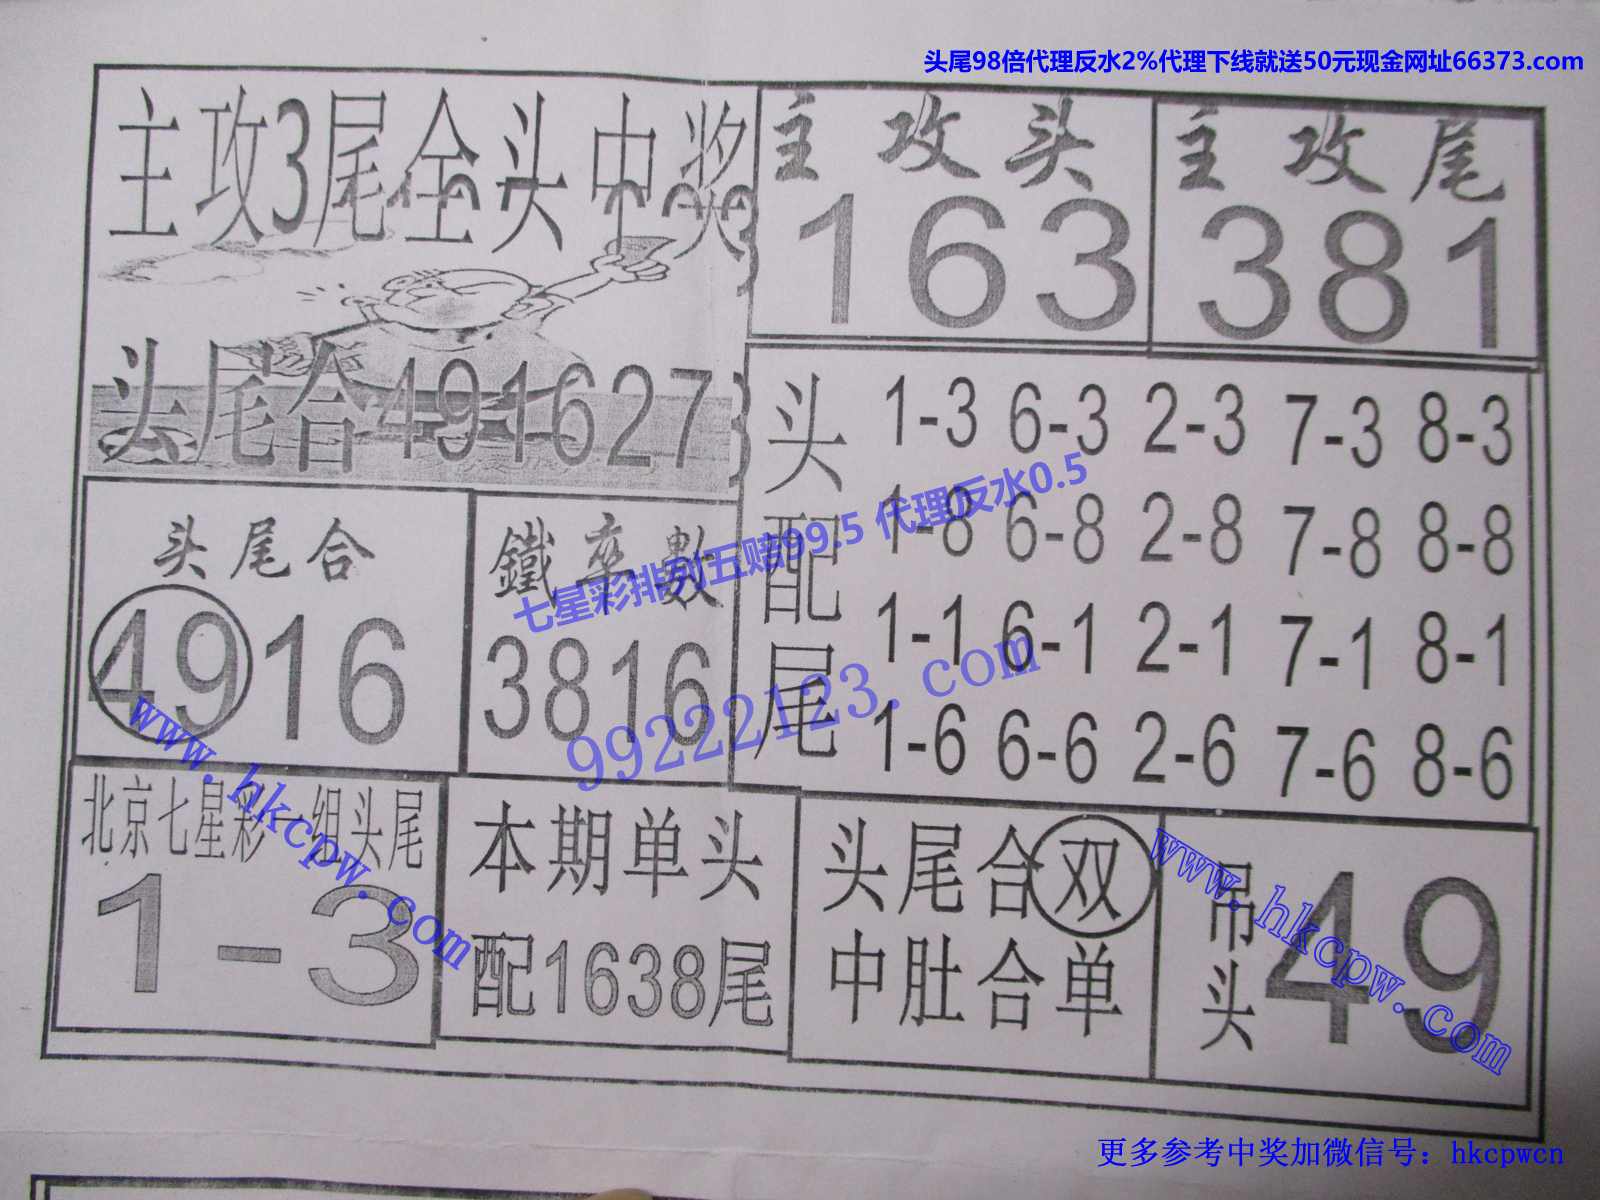 头尾98倍代理反水2%代理下线就送50元现金网址66373.com
主攻3尾全头中奖
头尾合491627
主攻头
163
主攻尾
381
头配尾
1-3 6-3 2-3 7-3 8-3
1-8 6-8 2-8 7-8 8-8
1-1 6-1 2-1 7-1 8-1
1-6 6-6 2-6 7-6 8-6
头尾合
4916
鐵卒數
3816
七星彩排列五赔99.5 代理反水0.5
99222123.com
北京七星彩一组头尾
1-3
www.hkcpw.com
本期单头
配1638尾
头尾合双
中肚合单
吊头
49
www.hkcpw.com
更多参考中奖加微信号：hkcpwcn